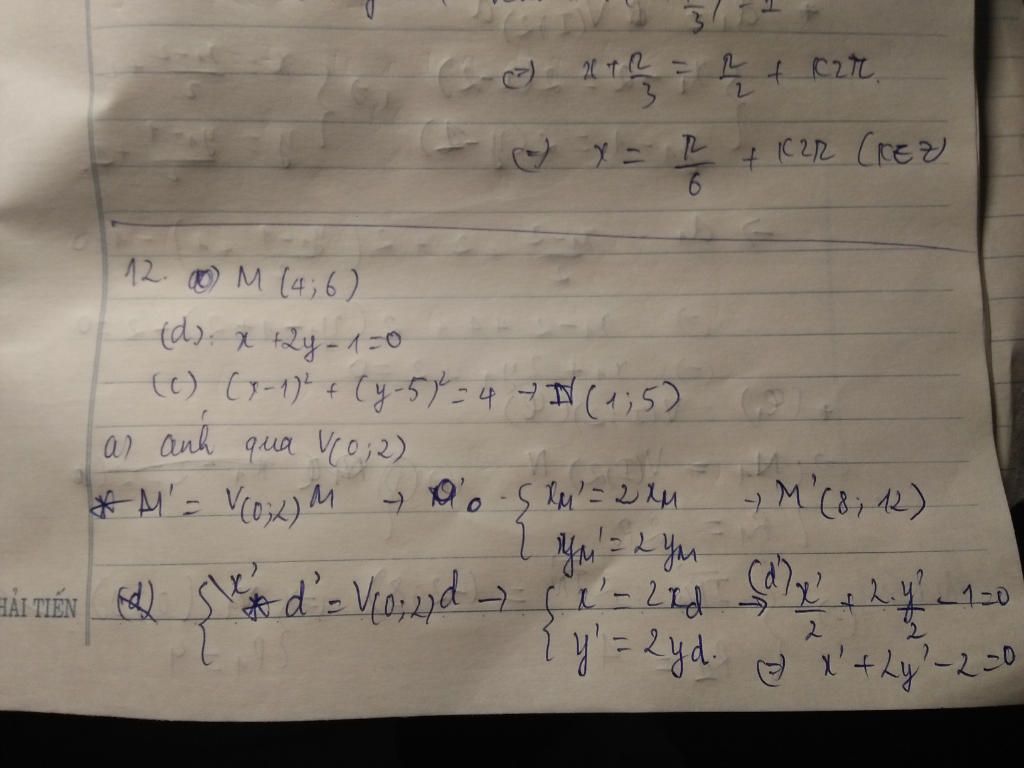 3) = 1
⇔ x + π/3 = π/2 + k2π.
⇔ x = π/6 + k2π (k∈Z)
12. M (4; 6)
(d): x + 2y - 1 = 0
(C) (x-1)² + (y-5)² = 4 → (1; 5)
a) ảnh qua V(0;2)
* M' = V(0;2) M → { xM' = 2xM → M' (8; 12)
yM' = 2yM
HẢI TIẾN
* d' = V(0;2) d → { x' = 2xd → (d') x'/2 + 2.y'/2 - 1 = 0
y' = 2yd. ⇔ x' + 2y' - 2 = 0